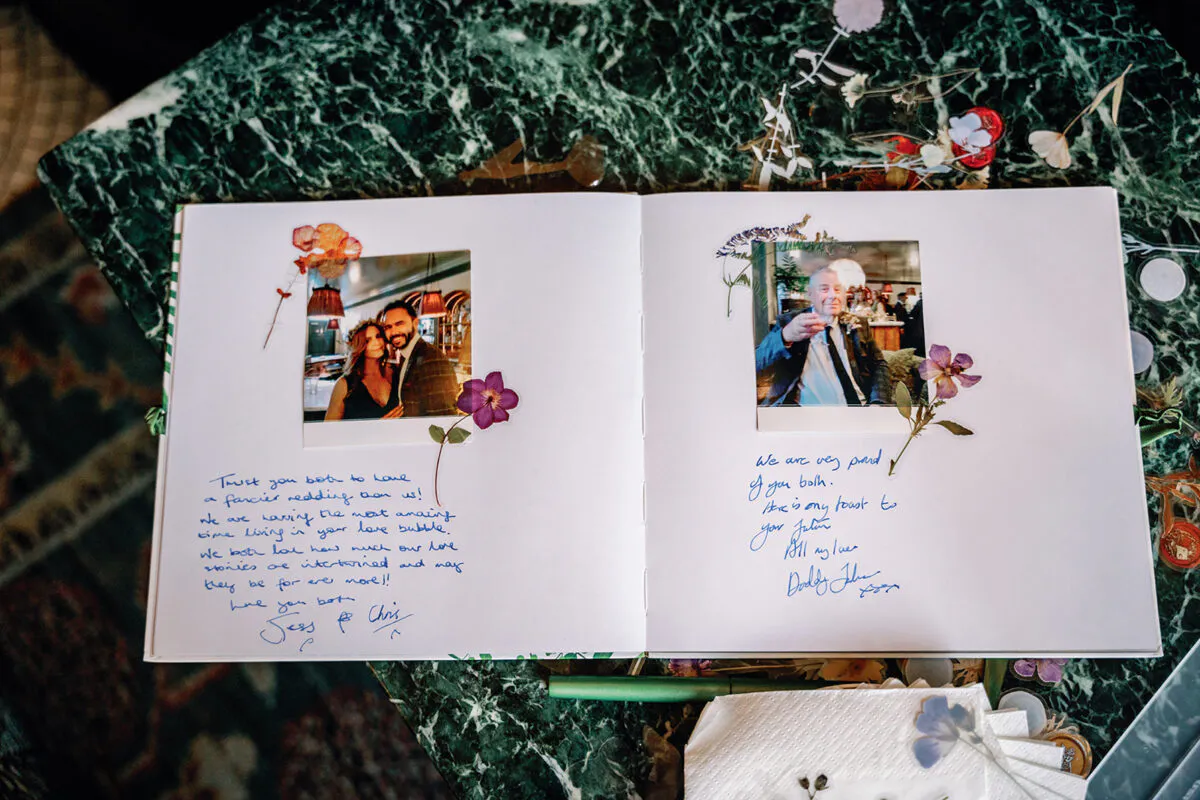 Trust you both to have
a fancier wedding than us!
We are having the most amazing
time living in your love bubble.
We both love how much our love
stories are intertwined and may
they be for ever more!!
Love you both
Jess & Chris
We are very proud
of you both.
Here is my toast to
your future
All my love
Daddy John
xxx